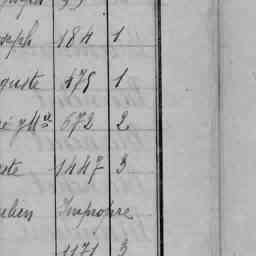 seph 184 1
guste 475 1
672 2
ste 1447 3
ulien Impropre
1171 3